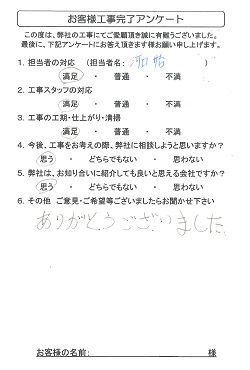 お客様工事完了アンケート
この度は、弊社の工事にてご愛顧頂き誠に有難うございました。
最後に、下記アンケートにお答え頂きます様お願い申し上げます。
1. 担当者の対応 (担当者名: 河口 )
満足 ・ 普通 ・ 不満
2. 工事スタッフの対応
満足 ・ 普通 ・ 不満
3. 工事の工期・仕上がり・清掃
満足 ・ 普通 ・ 不満
4. 今後、工事をお考えの際、弊社に相談しようと思いますか?
思う ・ どちらでもない ・ 思わない
5. 弊社は、お知り合いに紹介しても良いと思える会社ですか?
思う ・ どちらでもない ・ 思わない
6. その他 ご意見・ご希望等ございましたらお聞かせ下さい
ありがとうございました
お客様の名前: 様